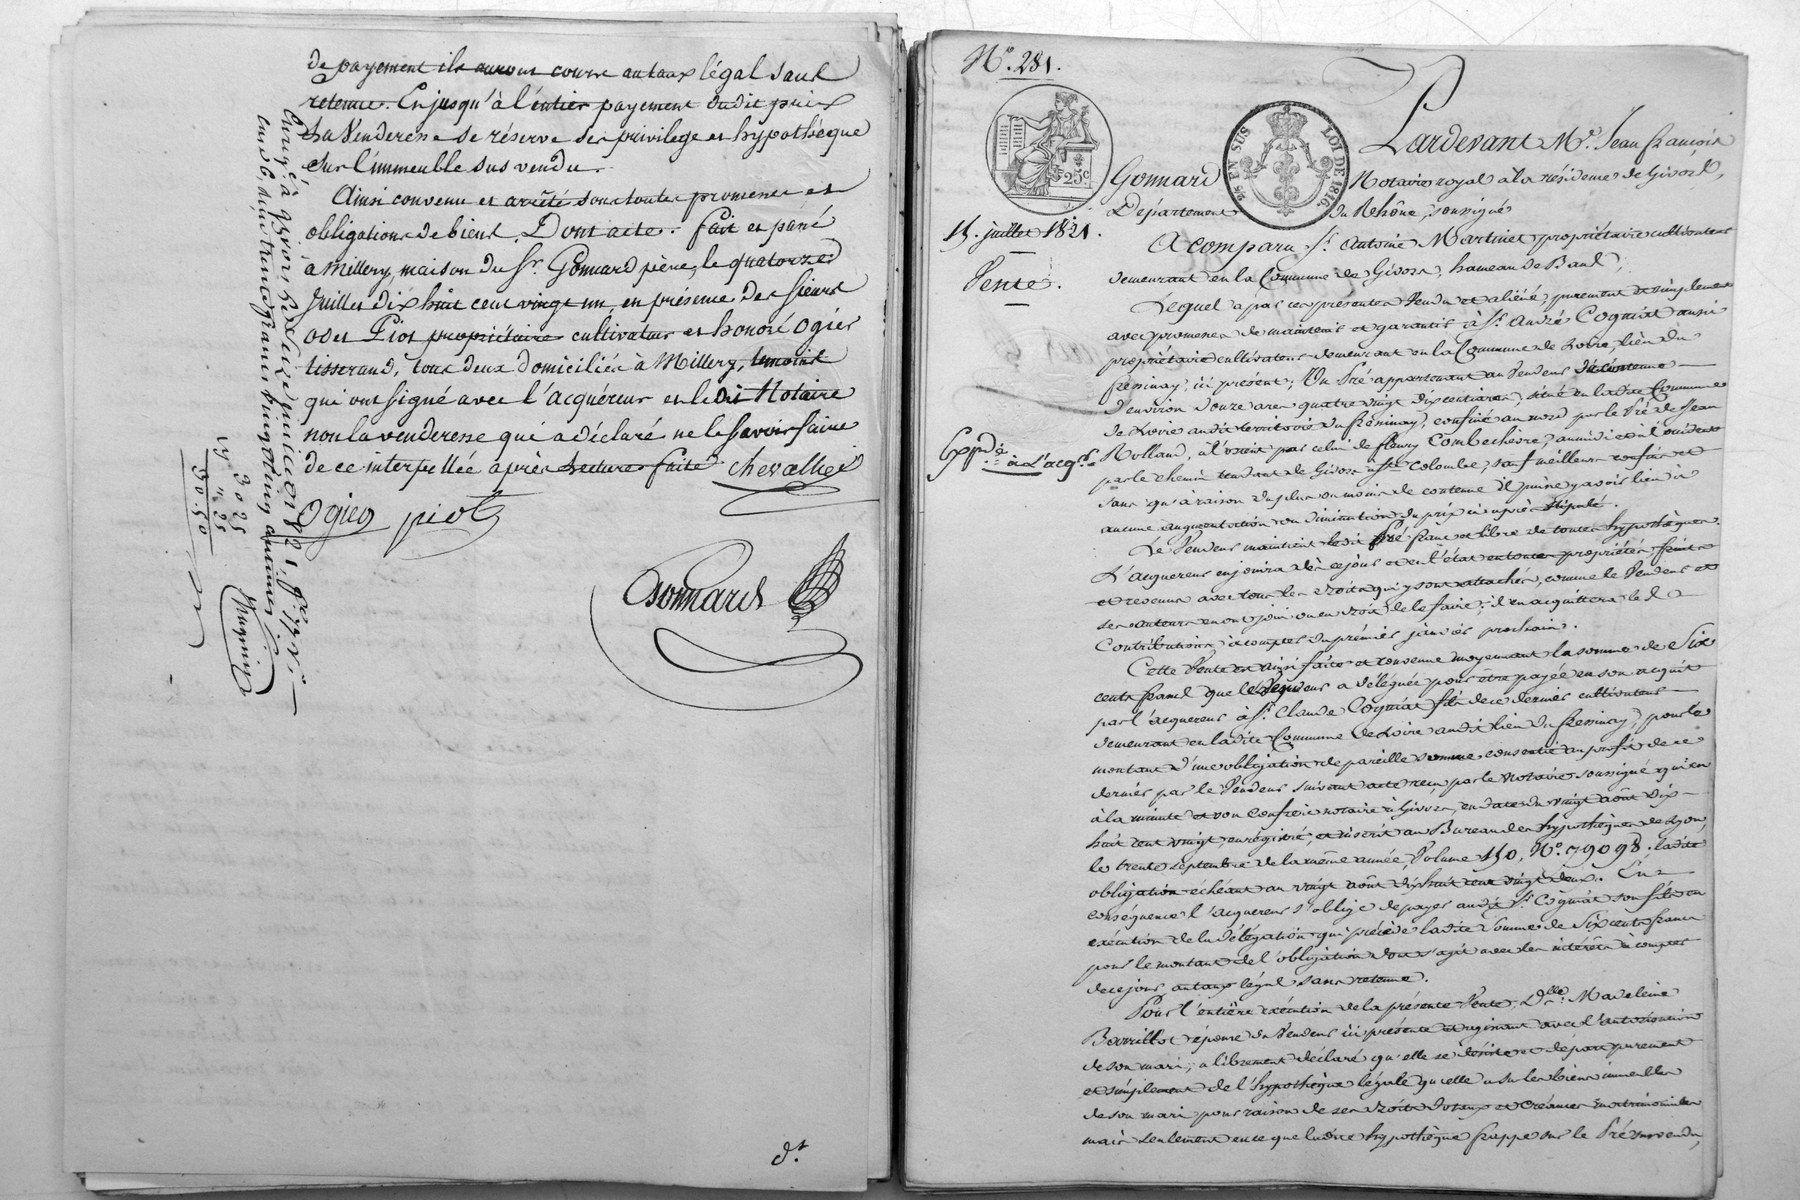 de payement ils auront cours au taux légal sans
retenue. Et jusqu'à l'entier payement dudit prix
La Venderesse se réserve ses privilege et hypothéque
sur l'immeuble sus vendu.
Ainsi convenu et arrêté sous toutes promesses et
obligations de biens. Dont acte. fait et passé
à Millery, maison du Sr. Gonnard père, le quatorze
Juillet dix huit cent vingt un, en présence des Sieurs
Piot propriétaire cultivateur et honoré Ogier
tisserand, tous deux domiciliés à Millery, temoins
qui ont signé avec l'acquéreur et ledit Notaire
non la venderesse qui a déclaré ne le savoir faire
de ce interpellée après lecture faite chevallier
Ogier piot
Gonnard
30 25
4 25
N°. 281.
25 c
2/5 EN SUS
LOI DE 1816.
15. juillet 1821.
Vente.
Expdé. à l'acqr.
Pardevant Me. Jean françois
Gonnard Notaire royal à la résidence de Givors,
Département du Rhône, soussigné
A comparu Sr. Antoine Martinet propriétaire cultivateur
demeurant en la Commune de Givors, hameau de Bans,
Lequel a par ces présentes Vendu et aliéné purement et simplement
avec promesse de maintenir et garantir à Sr. André Cogniat aussi
propriétaire cultivateur demeurant en la Commune de Loire, lieu du
fressinay, ici présent, Un Pré appartenant au Vendeur de contenue
d'environ douze ares quatre vingt dix centiares, situé en ladite Commune
de Loire audit territoire du fressinay, confiné au nord par le Pré de Jean
Rolland, à l'orient par celui de fleury Combechèvre, au midi et à l'occident
par le chemin tendant de Givors à Ste. Colombe, sauf meilleurs confins et
sans qu'à raison du plus ou moins de contenue il puisse y avoir lieu à
aucune augmentation ou diminution du prix ci après stipulé.
Le Vendeur maintient ledit Pré franc et libre de toutes hypothèques.
L'acquereur en jouira dès ce jour et en l'état en toute propriété, fruits
et revenus avec tous les droits qui y sont attachés, comme le Vendeur et
ses auteurs en ont joui ou eu droit de le faire; il en acquittera les
Contributions à compter du premier janvier prochain.
Cette Vente est ainsi faite et convenue moyennant la somme de Six
cents francs que le Vendeur a déléguée pour être payée en son acquit
par l'acquereur à Sr. Claude Cogniat fils de ce dernier cultivateur
demeurant en ladite Commune de Loire audit lieu du fressinay, pour le
montant d'une obligation de pareille somme consentie au profit de ce
dernier par le Vendeur suivant acte reçu par le notaire soussigné qui en
à la minute et son confrère notaire à Givors, en date du vingt août dix
huit cent vingt, enregistré, et inscrit au Bureau des hypothèques de Lyon,
le trente septembre de la même année, Volume 150, N°. 79098. ladite
obligation échéant au vingt août dix huit cent vingt deux. En
conséquence l'acquereur s'oblige de payer audit Sr. Cogniat son fils en
exécution de la délégation qui précède ladite somme de Six cents francs
pour le montant de l'obligation dont s'agit avec les intérêts à compter
de ce jour au taux légal sans retenue.
Pour l'entière exécution de la présente Vente, Dlle. Madeleine
épouse du Vendeur ici présente et agissant avec l'autorisation
de son mari, a librement déclaré qu'elle se désiste et départ purement
et simplement de l'hypothèque légale qu'elle a sur les biens immeubles
de son mari pour raison de ses droits dotaux et créances matrimoniales
mais seulement en ce que ladite hypothèque frappe sur le Pré survendu,